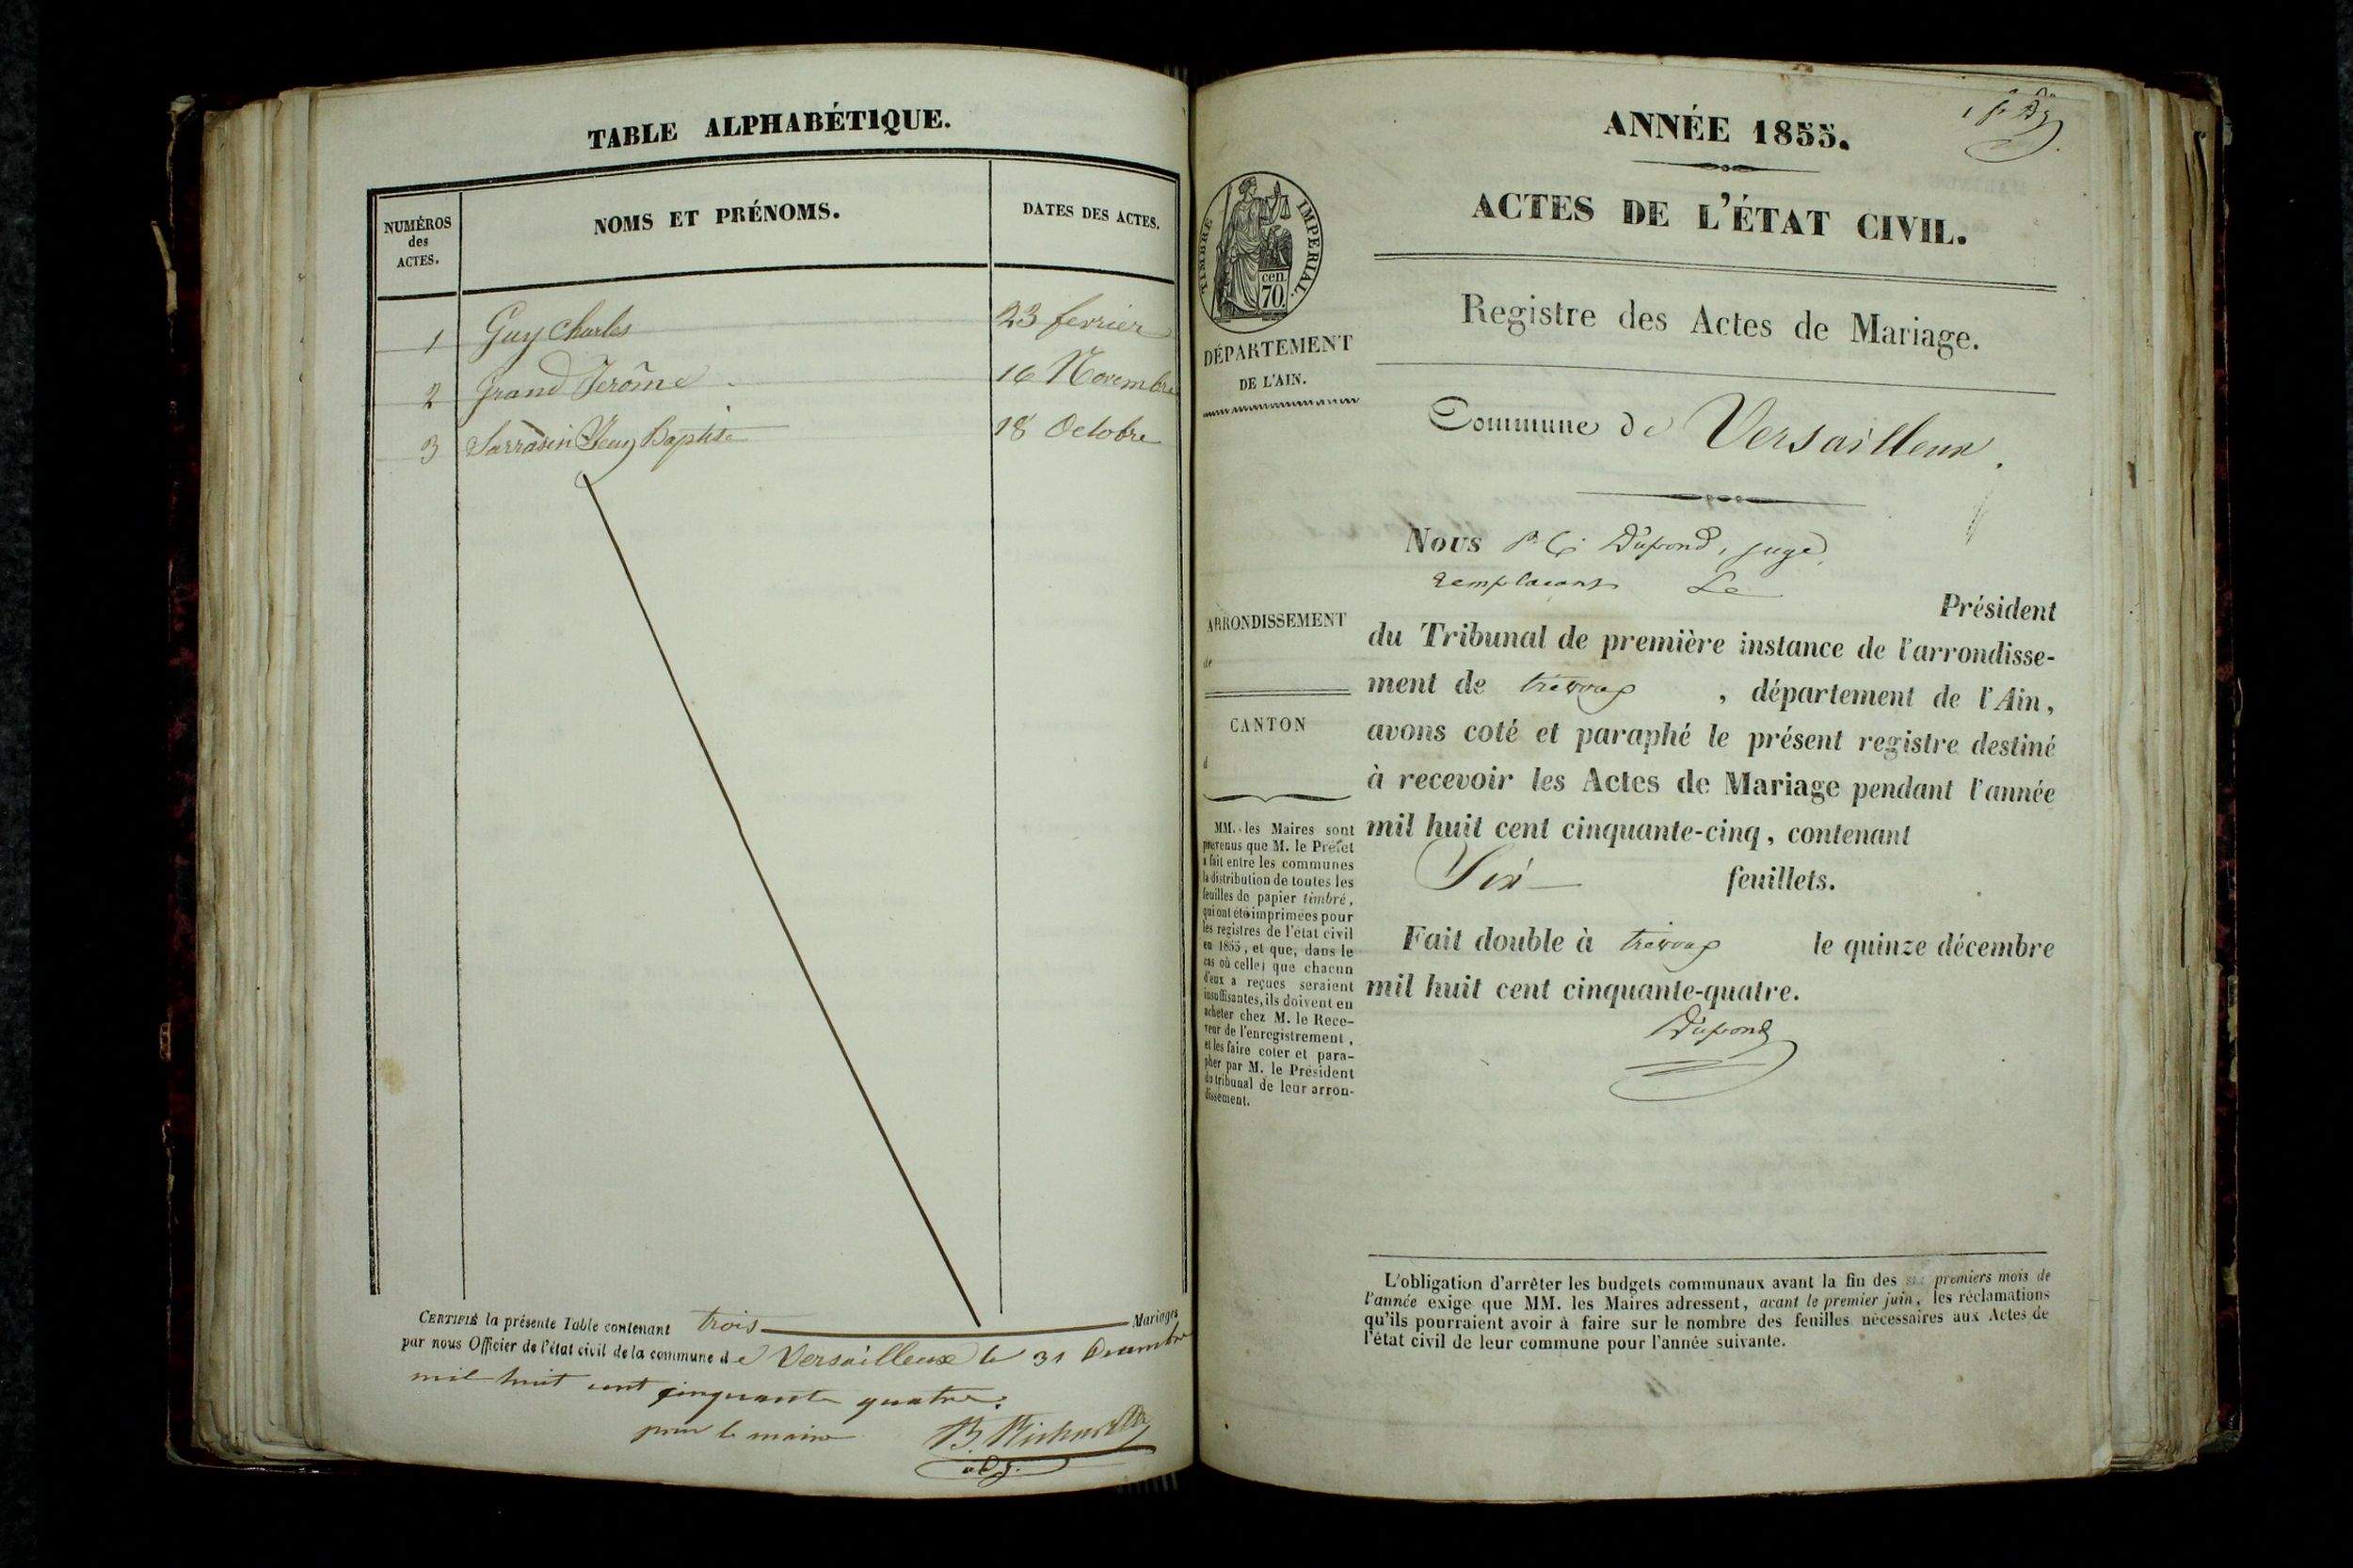 TABLE ALPHABÉTIQUE.
NUMÉROS
des
ACTES.
NOMS ET PRÉNOMS.
DATES DES ACTES.
1 Guy Charles 23 fevrier
2 Grand Jerôme 16 Novembre
3 Sarrasin Jean Baptiste 18 Octobre
CERTIFIÉ la présente Table contenant trois Mariages
par nous Officier de l'état civil de la commune de Versailleux le 31 Decembre
mil huit cent cinquante quatre.
pour le maire
adj.
ANNÉE 1855.
ACTES DE L'ÉTAT CIVIL.
TIMBRE IMPERIAL.
cen.
70.
Registre des Actes de Mariage.
DÉPARTEMENT
DE L'AIN.
Commune de Versailleux.
Nous Dupond, juge
remplaçant Le
Président
du Tribunal de première instance de l'arrondisse-
ment de trevoux, département de l'Ain,
avons coté et paraphé le présent registre destiné
à recevoir les Actes de Mariage pendant l'année
mil huit cent cinquante-cinq, contenant
Six feuillets.
Fait double à trevoux le quinze décembre
mil huit cent cinquante-quatre.
Dupond
ARRONDISSEMENT
de
CANTON
d
MM. les Maires sont
prévenus que M. le Préfet
a fait entre les communes
la distribution de toutes les
feuilles de papier timbré,
qui ont été imprimées pour
les registres de l'état civil
en 1855, et que, dans le
cas où celles que chacun
d'eux a reçues seraient
insuffisantes, ils doivent en
acheter chez M. le Rece-
veur de l'enregistrement,
et les faire coter et para-
pher par M. le Président
du tribunal de leur arron-
dissement.
L'obligation d'arrêter les budgets communaux avant la fin des six premiers mois de
l'année exige que MM. les Maires adressent, avant le premier juin, les réclamations
qu'ils pourraient avoir à faire sur le nombre des feuilles nécessaires aux Actes de
l'état civil de leur commune pour l'année suivante.